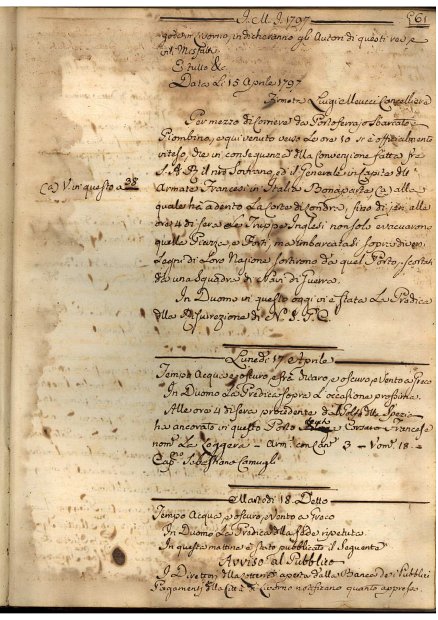 J. M. J. 1797
561
in Livorno, indicheranno gli Autori di questi
Misfatti
E tutto &c.
Data Li 15 Aprile 1797
Firmato Luigi Meucci Cancelliere
Per mezzo di Corriere da Portoferrajo Sbarcato a
Piombino, e qui venuto verso Le ore 10 si è officialmente
inteso, che in conseguenza della Convenzione fatta fra
S. A. R. il nro Sovrano, ed il Generale in Capite dell'
(a) V. in questo a 38
Armate Francesi in Italia Bonaparte (a) alla
quale ha aderito La Corte di Londra, fino di jeri alle
ore 4 di sera Le Truppe Inglesi non solo evacuarono
quella Piazza e Forti, ma imbarcatasi sopra diversi
Legni di Loro Nazione sortirono da quel Porto, scortati
da una Squadra di Navi di Guerra.
In Duomo in questo oggi vi è stata La Predica
della Resurrezione di N. S. G. C.
Lunedì 17 Aprile
Tempo Acqua e oscuro, e fra di chiaro, e oscuro, e Vento a Greco
In Duomo La Predica sopra L'occasione prossima
Alle ore 4 di sera precedente dal Golfo della Spezia
ha ancorato in questo Porto Corsaro Francese
nom. La Leggera - Arm. con Can. 3 - Uom. 18 -
Cap.no Sebastiano Camugli
Martedì 18 Detto
Tempo Acqua, e oscuro, e Vento a Greco
In Duomo La Predica della fede ripetuta
In questa mattina è stato pubblicato il Seguente
Avviso al Pubblico
I Direttori della aperta dalla Banca de' Pubblici
Pagamenti della Città di Livorno notificano quanto appresso.